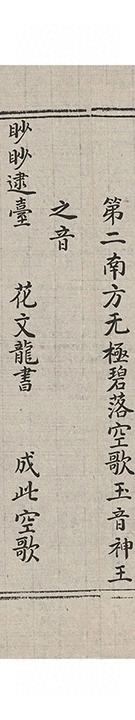 第二南方无極碧落空歌玉音神王
之音
眇眇逮臺　花文龍書　成此空歌